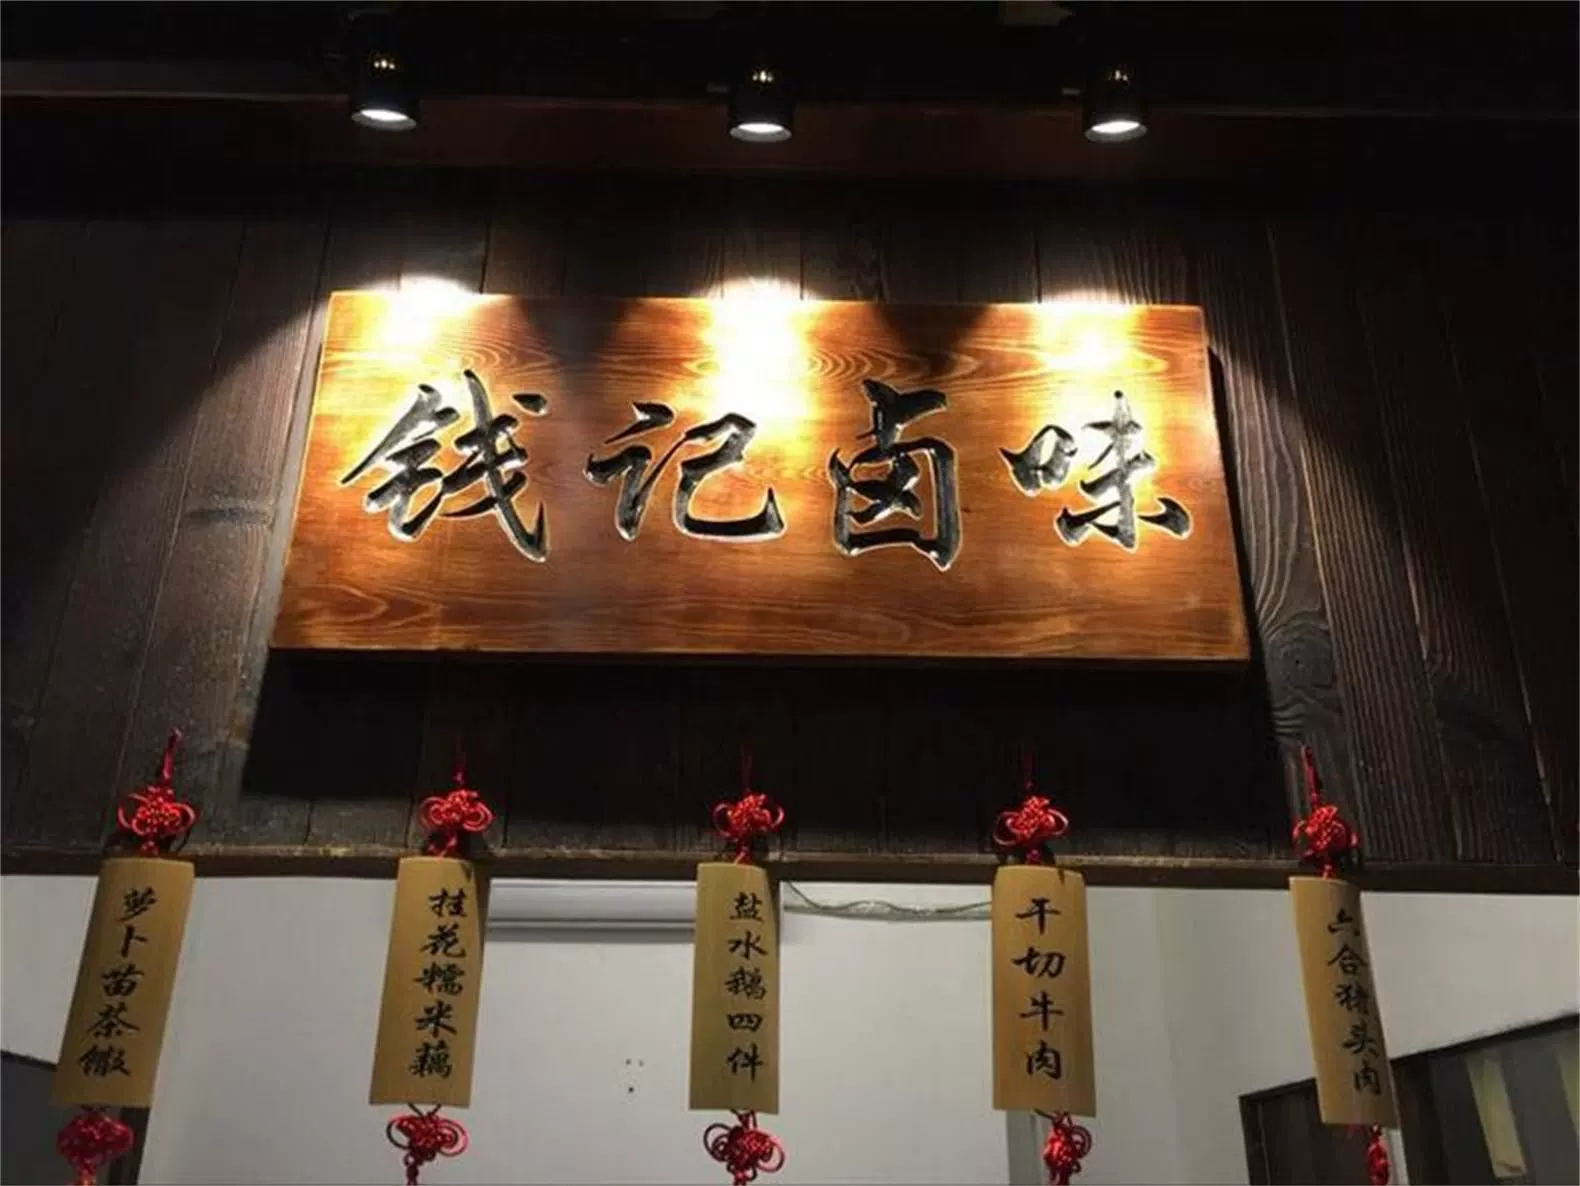 钱记卤味
萝卜苗茶馓
挂花糯米藕
盐水鹅四件
干切牛肉
六合猪头肉